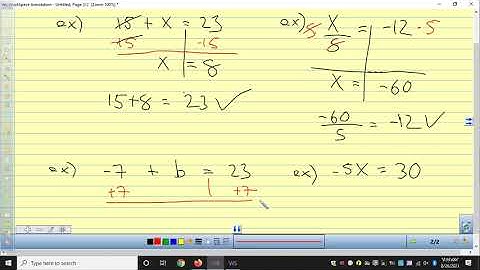 Workspace annotation - Untitled, Page 2/2 (Zoom 100%) *
ex) 15 + x = 23
+15 | -15
x = 8
15+8 = 23 ✓
ex) 5 · x/8 = -12 · 5
x = -60
-60/5 = -12 ✓
ex) -7 + b = 23
+7 | +7
ex) -5x = 30
2/2
Type here to search
WS
8/26/2021